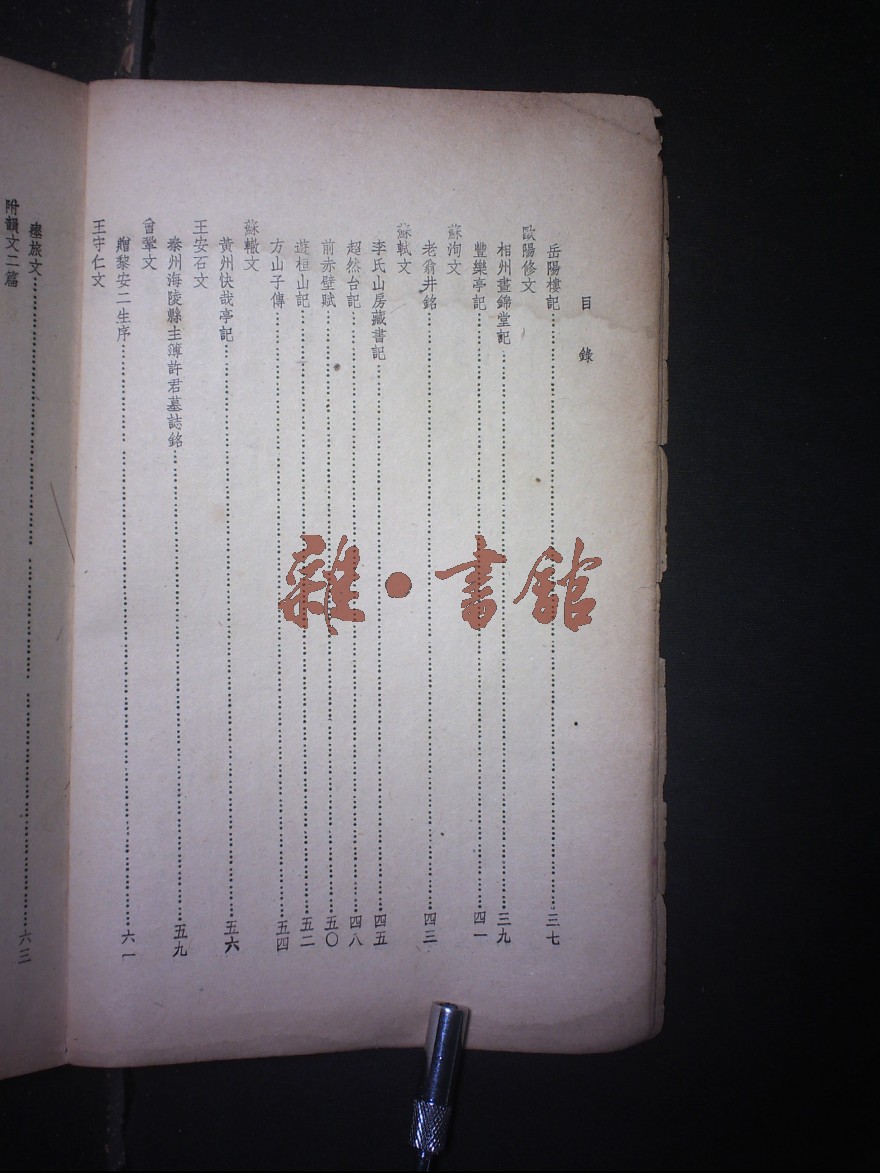 目錄
岳陽樓記……三七
歐陽修文
相州晝錦堂記……三九
豐樂亭記……四一
蘇洵文
老翁井銘……四三
蘇軾文
李氏山房藏書記……四五
超然台記……四八
前赤壁賦……五〇
遊桓山記……五二
方山子傳……五四
蘇轍文
黃州快哉亭記……五六
王安石文
泰州海陵縣主簿許君墓誌銘……五九
曾鞏文
贈黎安二生序……六一
王守仁文
瘞旅文……六三
附韻文二篇
雜·書館